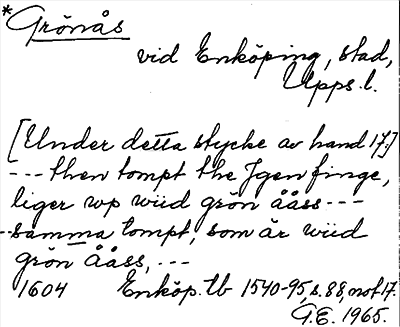 *Grönås
vid Enköping, stad,
Upps. l.
[Under detta stycke av hand 17.]
--- then tompt the Igen finge,
liger wp wiid grön ååss ---
-- samma tompt, som är wiid
grön ååss, ---
1604 Enköp. tb 1540-95, s. 88, not 17.
G.E. 1965.